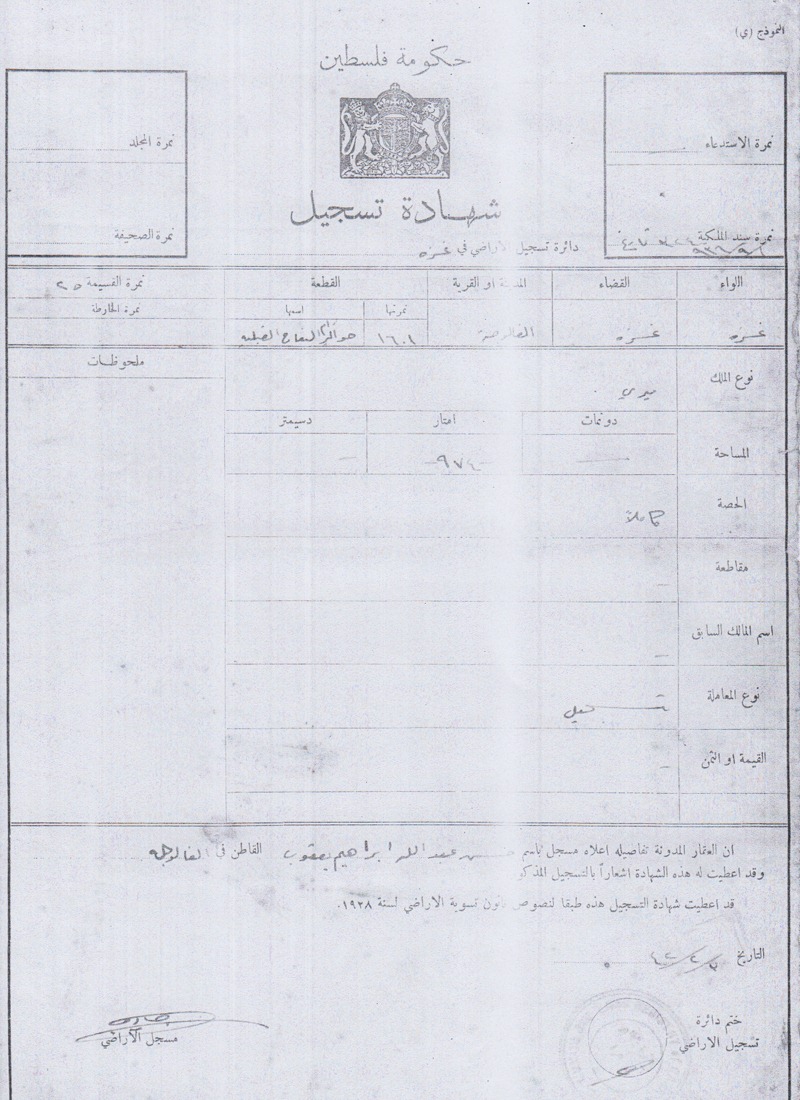 النموذج (ي)
حكومة فلسطين
نمرة الاستدعاء
نمرة المجلد
شهادة تسجيل
نمرة سند الملكية
نمرة الصحيفة
دائرة تسجيل الاراضي في غزه
اللواء القضاء المدينة او القرية القطعة نمرة القسيمة ٢٥
نمرتها اسمها نمرة الخارطة
غزه غزه الفالوجة ١٦٠١
ملحوظات
نوع الملك ميري
دونمات امتار دسيمتر
المساحة — ٩٧٤ —
الحصة كاملا
مقاطعة —
اسم المالك السابق —
نوع المعاملة تسجيل
القيمة او الثمن —
ان العقار المدونة تفاصيله اعلاه مسجل باسم حسن عبد الله ابراهيم يعقوب القاطن في الفالوجه
وقد اعطيت له هذه الشهادة اشعاراً بالتسجيل المذكور
قد اعطيت شهادة التسجيل هذه طبقا لنصوص قانون تسوية الاراضي لسنة ١٩٢٨.
التاريخ
ختم دائرة
تسجيل الاراضي
مسجل الاراضي